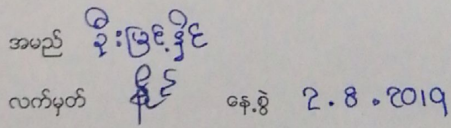 အမည် ဦးမြင့်နိုင်
လက်မှတ် နိုင် နေ့စွဲ 2.8.2019